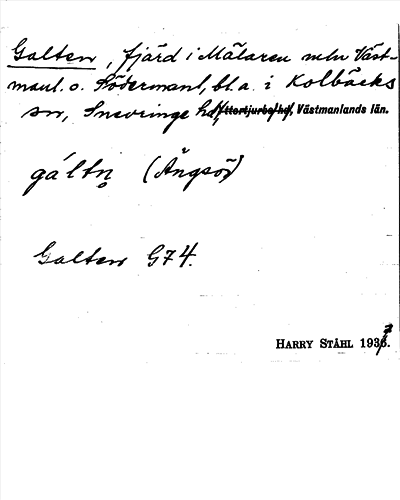 Galten, fjärd i Mälaren mln Väst-
manl. o. Södermanl, bl.a. i Kolbäcks
sn, Snevringe hd, Yttertjurbo hd, Västmanlands län.
gáltn̥ (Ängsö)
Galten G74.
HARRY STÅHL 1937.